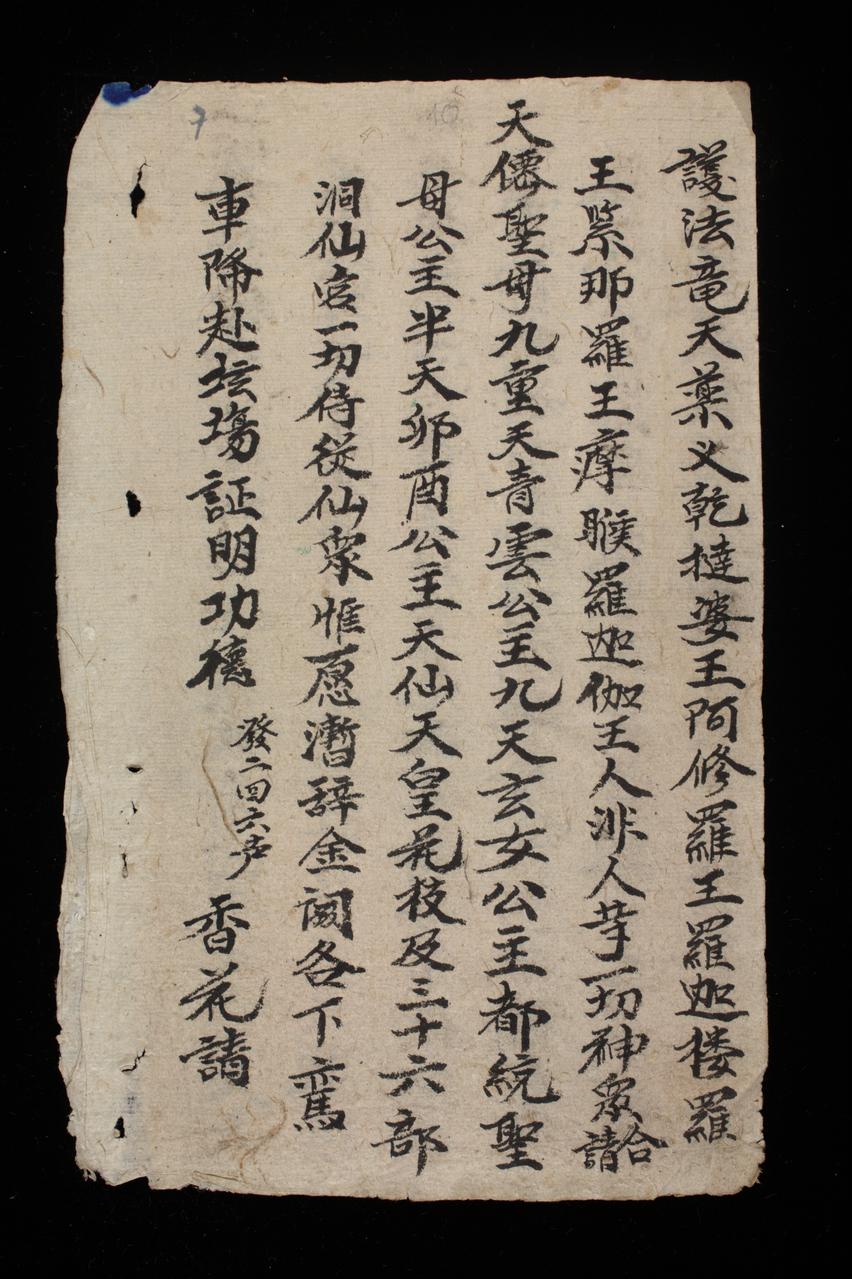 護法竜天藥义乾撻婆王阿修羅王羅迦楼羅
王緊那羅王摩睺羅迦伽王人非人等一切神衆合請
天僊聖母九重天青雲公主九天玄女公主都統聖
母公主半天卯酉公主天仙天皇花枝及三十六部
洞仙宮一切侍從仙衆惟愿暫辞金闕各下鸞
車降赴坛場証明功德 發二四六声 香花請
7
10